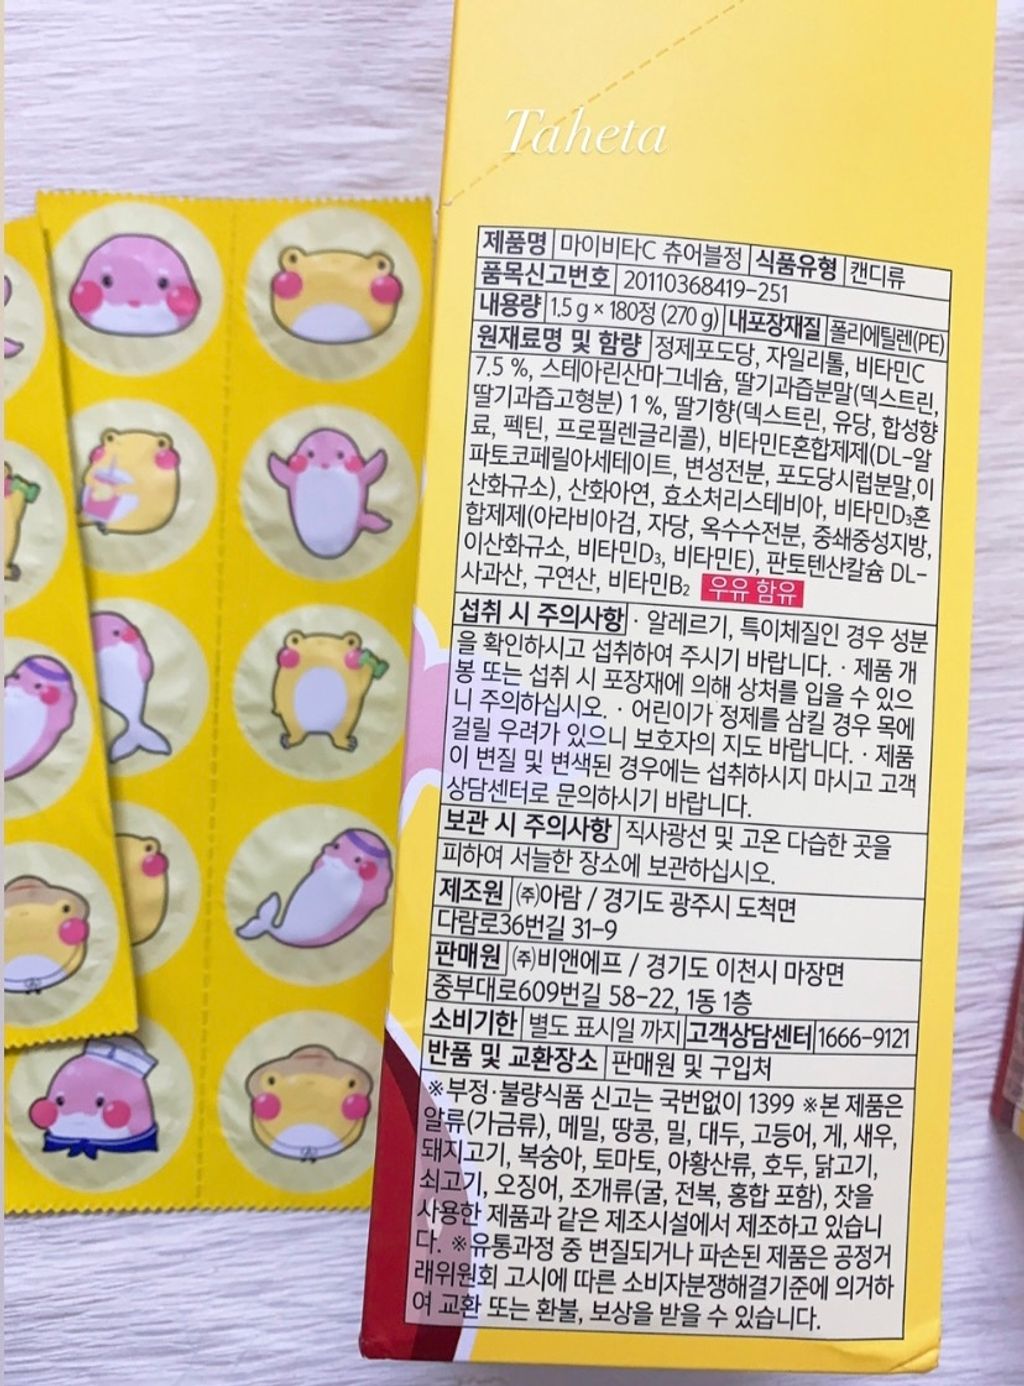 Taheta
제품명 마이비타C 츄어블정 식품유형 캔디류
품목신고번호 20110368419-251
내용량 1.5 g × 180정 (270 g) 내포장재질 폴리에틸렌(PE)
원재료명 및 함량 정제포도당, 자일리톨, 비타민C
7.5 %, 스테아린산마그네슘, 딸기과즙분말(덱스트린,
딸기과즙고형분) 1 %, 딸기향(덱스트린, 유당, 합성향
료, 펙틴, 프로필렌글리콜), 비타민E혼합제제(DL-알
파토코페릴아세테이트, 변성전분, 포도당시럽분말,이
산화규소), 산화아연, 효소처리스테비아, 비타민D₃혼
합제제(아라비아검, 자당, 옥수수전분, 중쇄중성지방,
이산화규소, 비타민D₃, 비타민E), 판토텐산칼슘 DL-
사과산, 구연산, 비타민B₂ 우유 함유
섭취 시 주의사항 · 알레르기, 특이체질인 경우 성분
을 확인하시고 섭취하여 주시기 바랍니다. · 제품 개
봉 또는 섭취 시 포장재에 의해 상처를 입을 수 있으
니 주의하십시오. · 어린이가 정제를 삼킬 경우 목에
걸릴 우려가 있으니 보호자의 지도 바랍니다. · 제품
이 변질 및 변색된 경우에는 섭취하시지 마시고 고객
상담센터로 문의하시기 바랍니다.
보관 시 주의사항 직사광선 및 고온 다습한 곳을
피하여 서늘한 장소에 보관하십시오.
제조원 (주)아람 / 경기도 광주시 도척면
다람로36번길 31-9
판매원 (주)비앤에프 / 경기도 이천시 마장면
중부대로609번길 58-22, 1동 1층
소비기한 별도 표시일 까지 고객상담센터 1666-9121
반품 및 교환장소 판매원 및 구입처
※부정·불량식품 신고는 국번없이 1399 ※본 제품은
알류(가금류), 메밀, 땅콩, 밀, 대두, 고등어, 게, 새우,
돼지고기, 복숭아, 토마토, 아황산류, 호두, 닭고기,
쇠고기, 오징어, 조개류(굴, 전복, 홍합 포함), 잣을
사용한 제품과 같은 제조시설에서 제조하고 있습니
다. ※유통과정 중 변질되거나 파손된 제품은 공정거
래위원회 고시에 따른 소비자분쟁해결기준에 의거하
여 교환 또는 환불, 보상을 받을 수 있습니다.